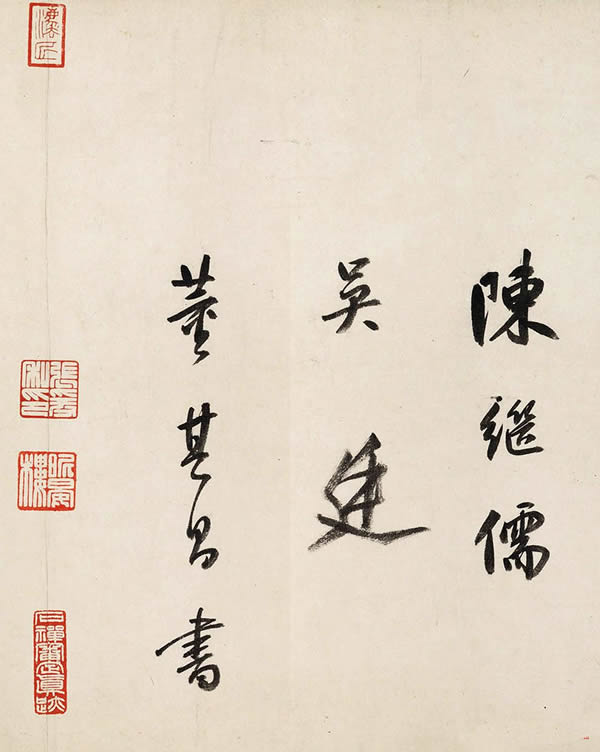 陳継儒
吳廷
董其昌書